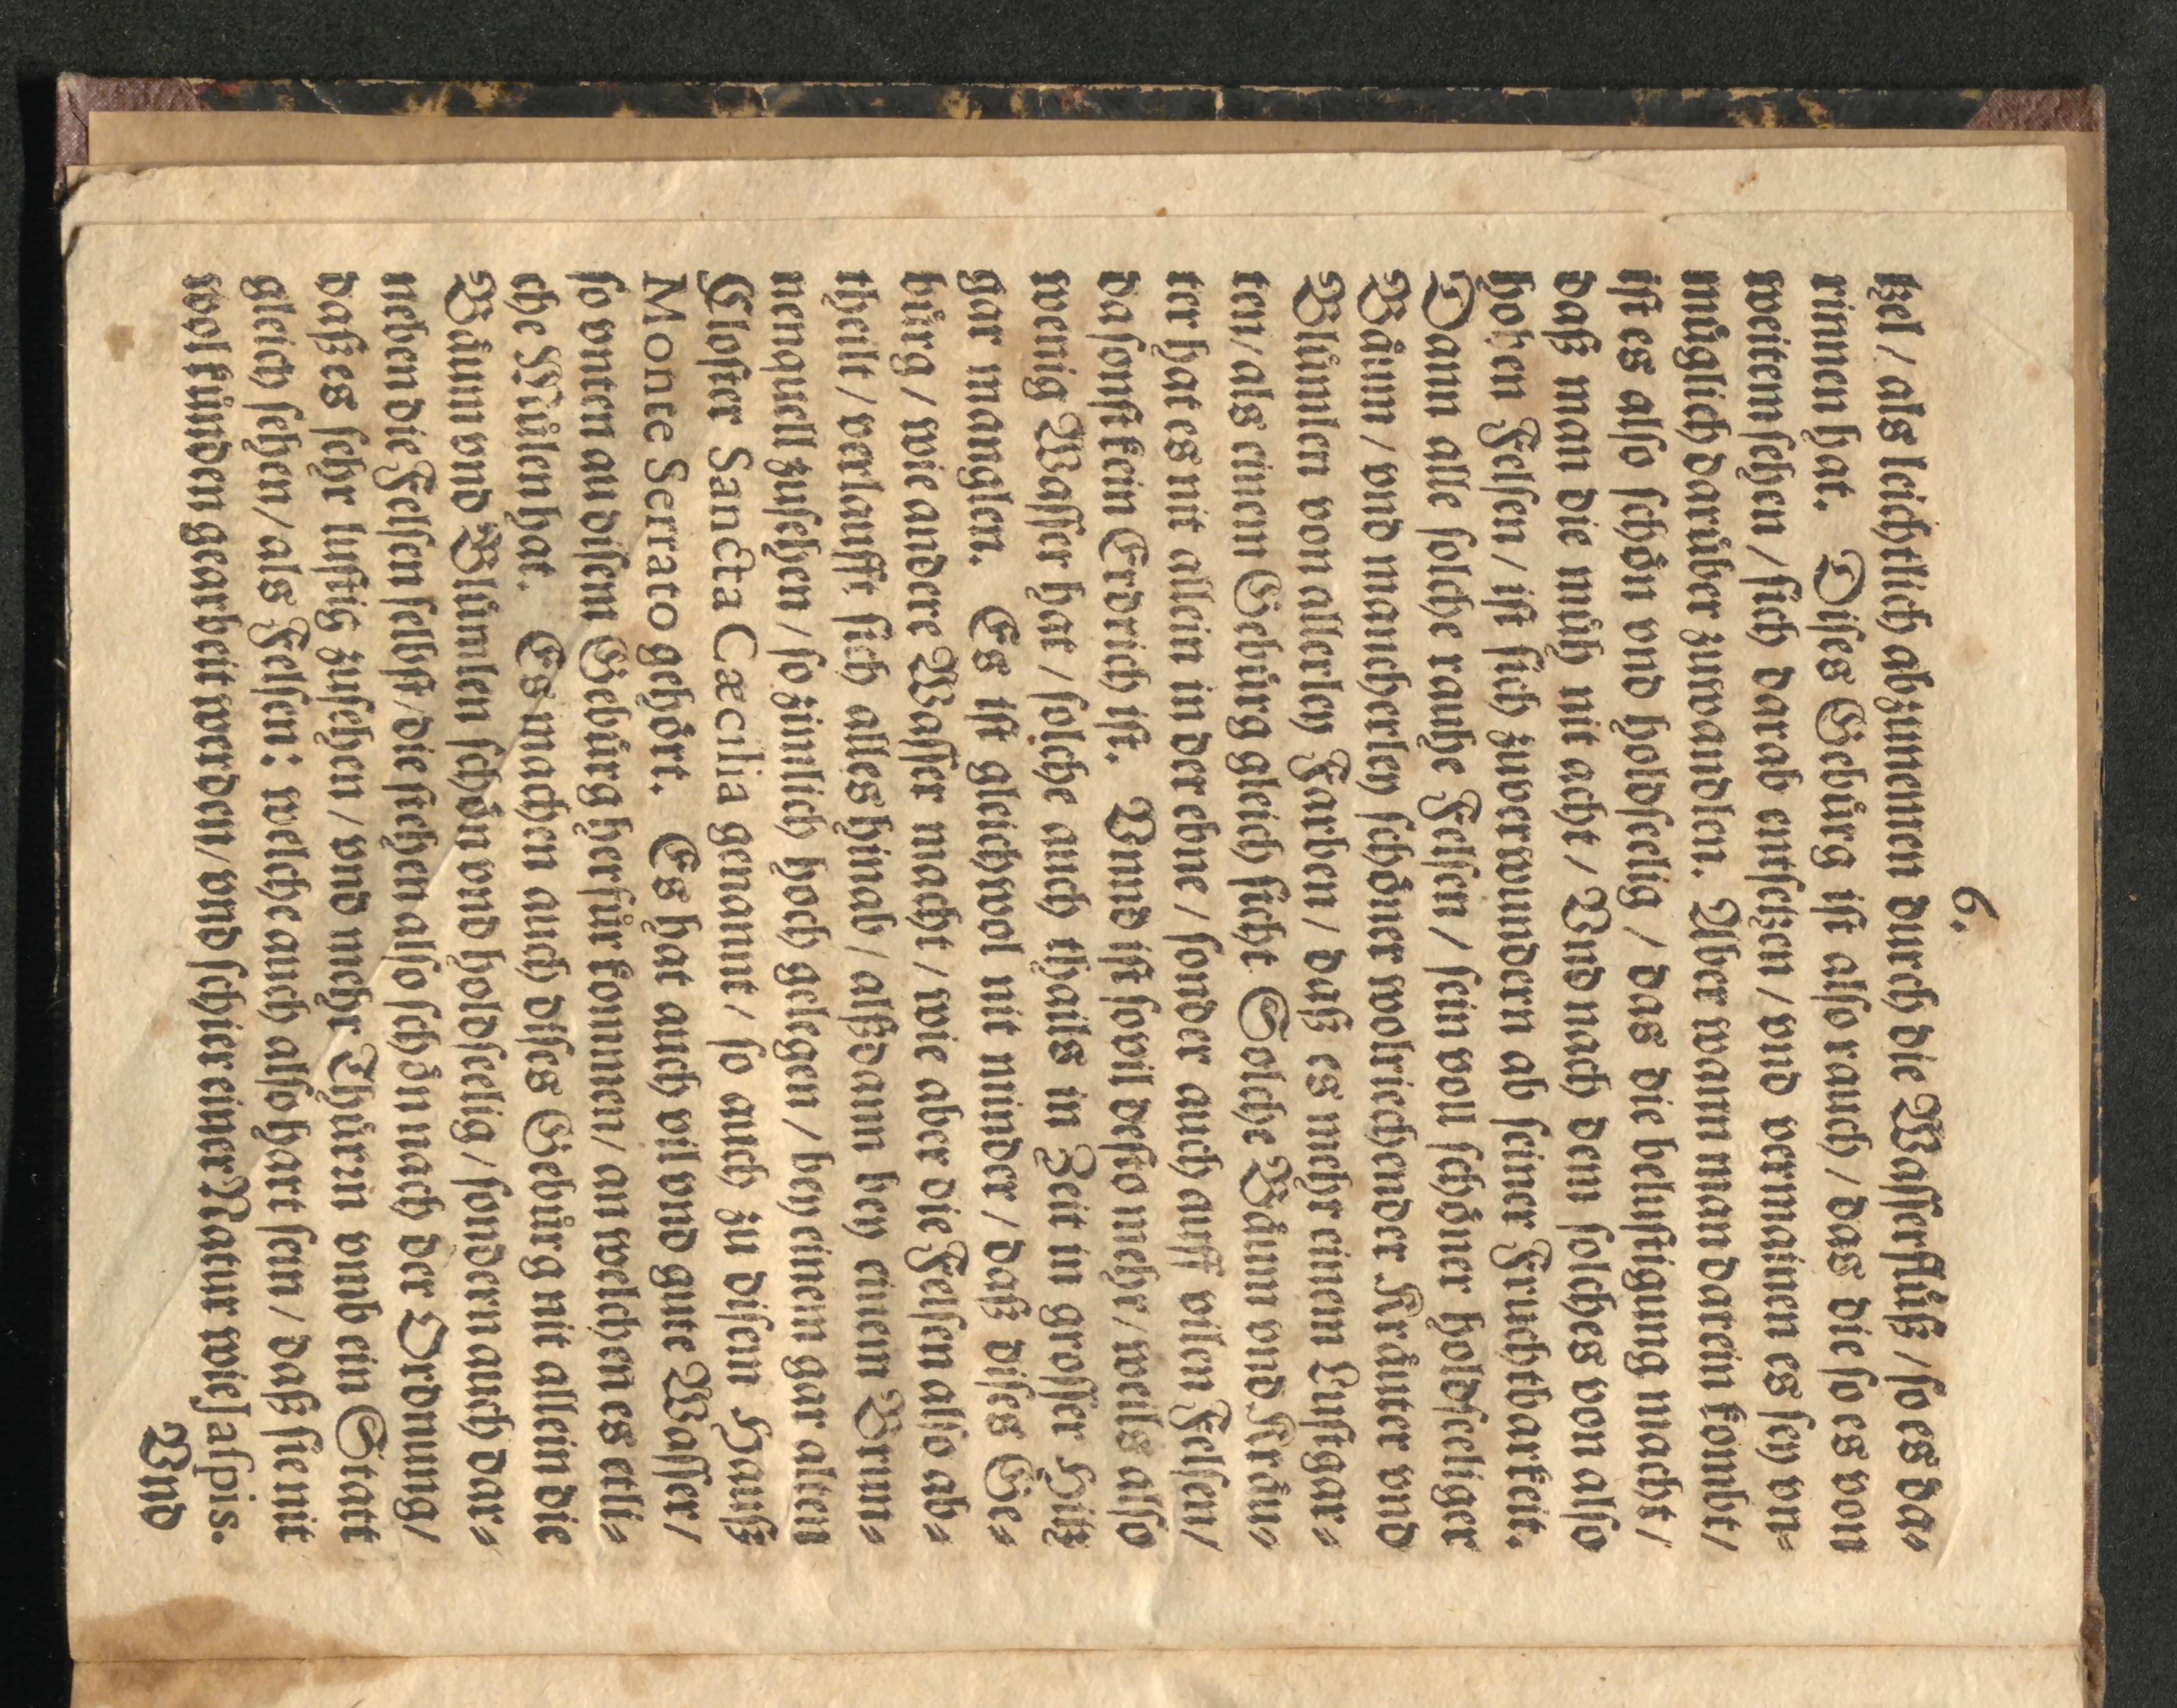 6.
kel / als leichtlich abzunemen durch die Wasserflüß / so es da⸗
rinnen hat. Dises Gebürg ist also rauch / das die so es von
weitem sehen / sich darab entsetzen / vnd vermainen es sey vn⸗
müglich darüber zuwandlen. Aber wann man darein kombt /
ist es also schön vnd holdselig / das die belustigung macht /
daß man die müh nit acht / Vnd nach dem solches von also
hohen Felsen / ist sich zuverwundern ab seiner Fruchtbarkeit.
Dann alle solche rauhe Felsen / sein voll schöner holdseeliger
Bäum / vnd mancherley schöner wolriechender Kräuter vnd
Blümlen von allerley Farben / daß es mehr einem Lustgar⸗
ten / als einem Gebürg gleich sicht Solche Bäum vnd Kräu⸗
ter hat es nit allein in der ebne / sonder auch auff vilen Felsen /
da sonst kein Erdrich ist. Vnnd ist sovil desto mehr / weils also
wenig Wasser hat / solche auch thails in Zeit in grosser Hitz
gar manglen. Es ist gleichwol nit minder / daß dises Ge⸗
bürg / wie andere Wasser macht / wie aber die Felsen also ab⸗
theilt / verlaufft sich alles hinab / alßdann bey einem Brun⸗
nenquell zusehen / so zimlich hoch gelegen / bey einem gar alten
Closter Sancta Cæcilia genannt / so auch zu disem Hauß
Monte Serrato gehört. Es hat auch vil vnd gute Wasser /
so vnten an disem Gebürg herfür kommen / an welchen es etli⸗
che Mülen hat. Es machen auch dises Gebürg nit allein die
Bäum vnd Blümlen schön vnd holdseelig / sondern auch dar⸗
neben die Felsen selbst / die stehen also schön nach der Ordnung /
daß es sehr lustig zusehen / vnd mehr Thürn vmb ein Statt
gleich sehen / als Felsen: welche auch also hart sein / daß sie nit
wol künden gearbeit werden / vnd schier einer Natur wie Jaspis.
Vnd